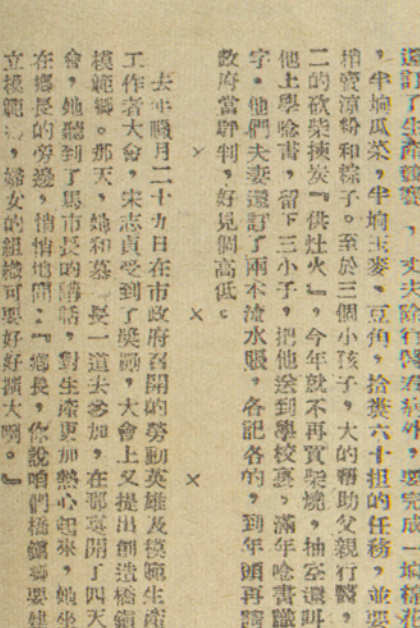 還訂了生產競賽，丈夫除行醫治病外，要完成一垧棉花
，半垧瓜菜，半垧玉麥、豆角，拾糞六十担的任務，並要
捎賣涼粉和粽子。至於三個小孩子，大的帮助父親行醫，
二的砍柴揀炭『供灶火』，今年就不再買柴燒，抽空還叫
他上學唸書，留下三小子，把他送到學校裏，滿年唸書識
字。他們夫妻還訂了兩本流水賬，各記各的，到年頭再請
政府當評判，好見個高低。
× × ×
去年臘月二十九日在市政府召開的勞動英雄及模範生產
工作者大會，宋志貞受到了獎勵，大會上又提出創造橋鎮
模範鄉。那天，她和慕 長一道去參加，在那裏開了四天
會，她聽到了馬市長的講話，對生產更加熱心起來，她坐
在鄉長的旁邊，悄悄地問：『鄉長，你說咱們橋鎮鄉要建
立模範 ，婦女的組織可要好好擴大啊。』